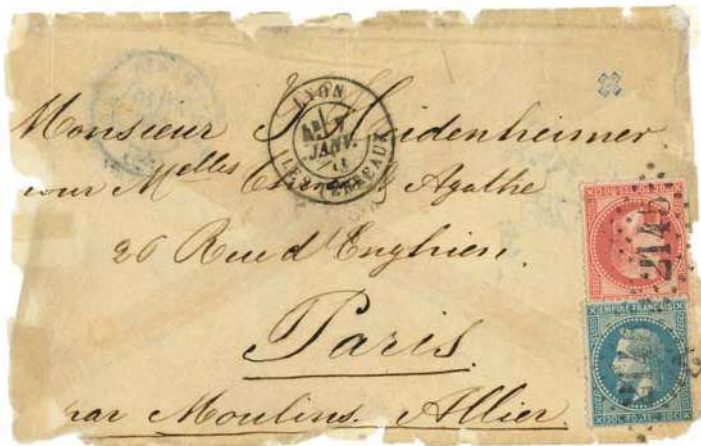 LYON
JANV.
LES TERREAUX
Monsieur Heidenheimer
pour Melles & Agathe
26 Rue d'Enghien.
Paris
par Moulins. Allier
214
EMPIRE FRANÇAIS
214
POSTES